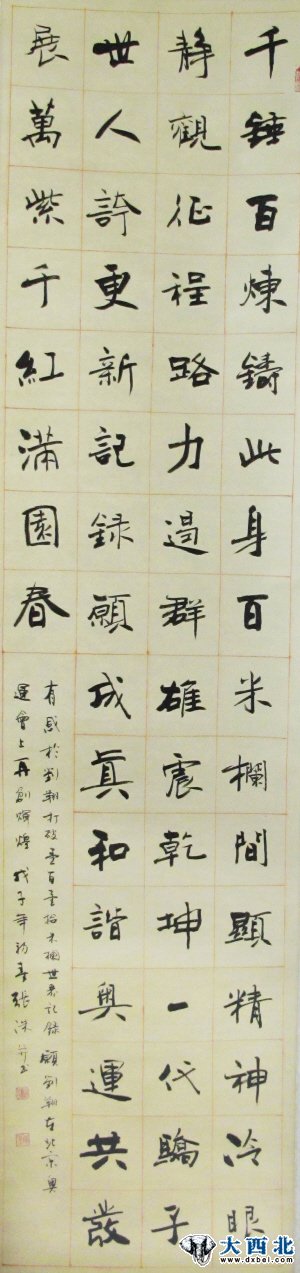 千錘百煉鑄此身百米欄間顯精神冷眼
靜觀征程路力遏群雄震乾坤一代驕子
世人誇更新記録願成真和諧奧運共發
展萬紫千紅滿園春
有感於劉翔打破壹百壹拾米欄世界記録願劉翔在北京奧
運會上再創輝煌戊子年初春張洪
大西北
www.dxbei.com